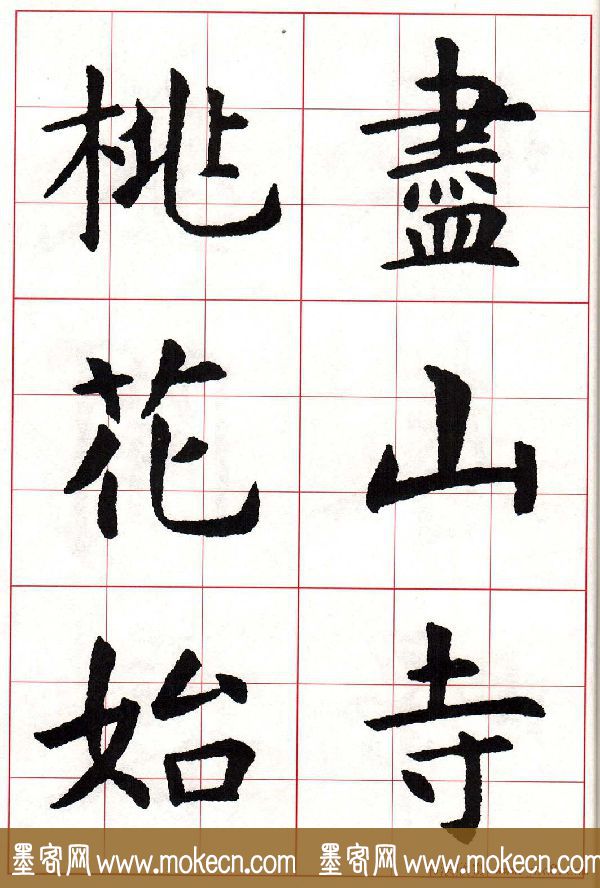 盡山寺
桃花始
墨客网 www.mokecn.com 墨客网 www.mokecn.com